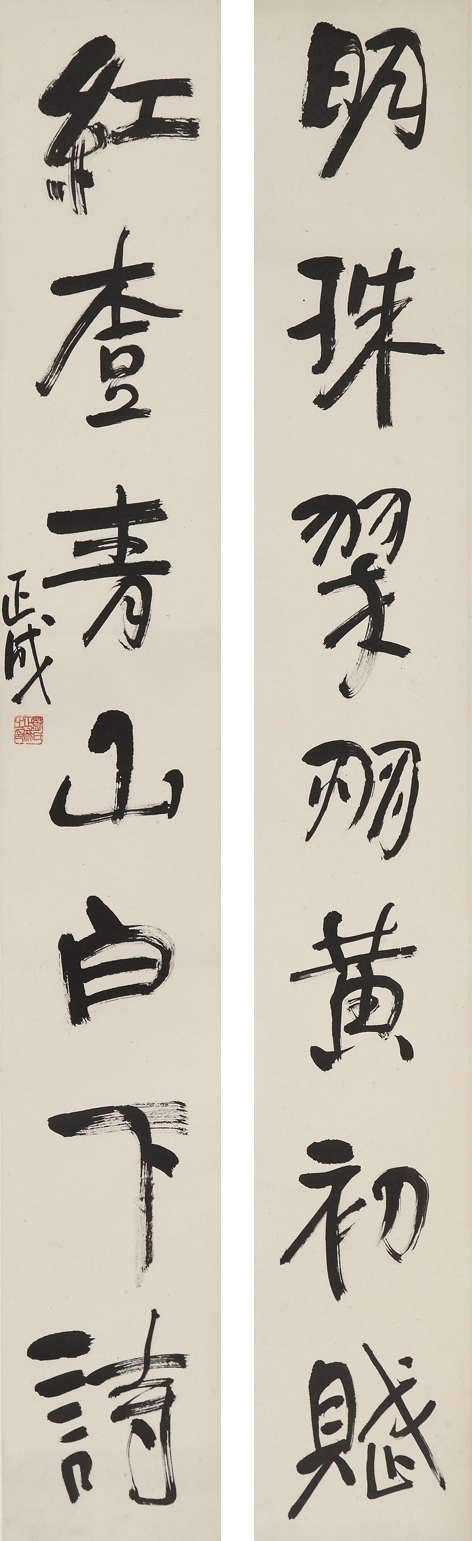 明珠翠羽黄初賦
紅杏青山白下詩
正成